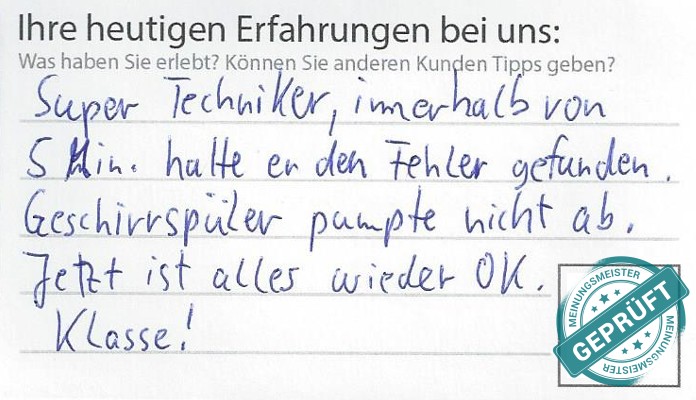 Ihre heutigen Erfahrungen bei uns:
Was haben Sie erlebt? Können Sie anderen Kunden Tipps geben?
Super Techniker, innerhalb von
5 Min. hatte er den Fehler gefunden.
Geschirrspüler pumpte nicht ab.
Jetzt ist alles wieder OK.
Klasse!
MEINUNGSMEISTER
GEPRÜFT
MEINUNGSMEISTER